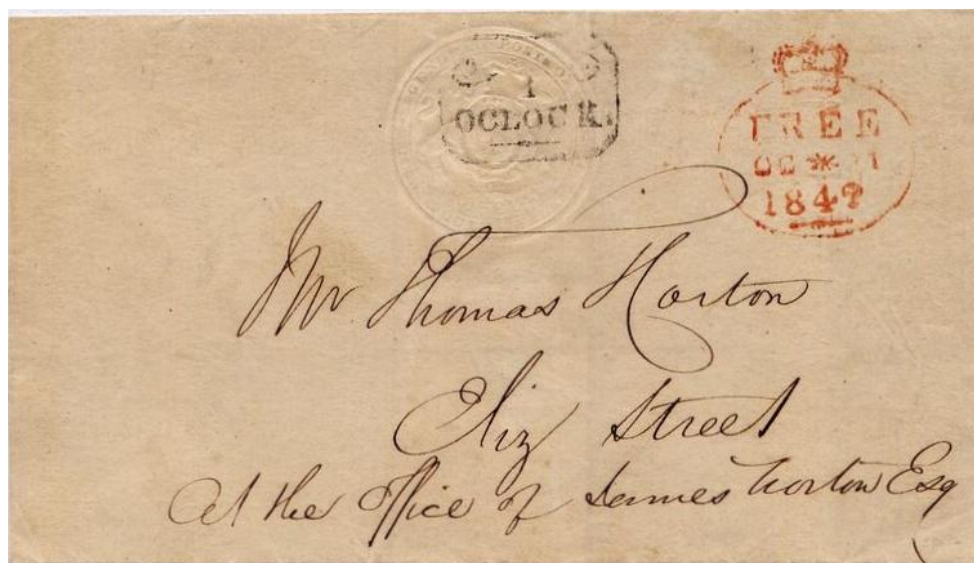 1
OCLOCK.
FREE
OC
Mr Thomas Horton
Eliz Street
At the Office of James Norton Esq